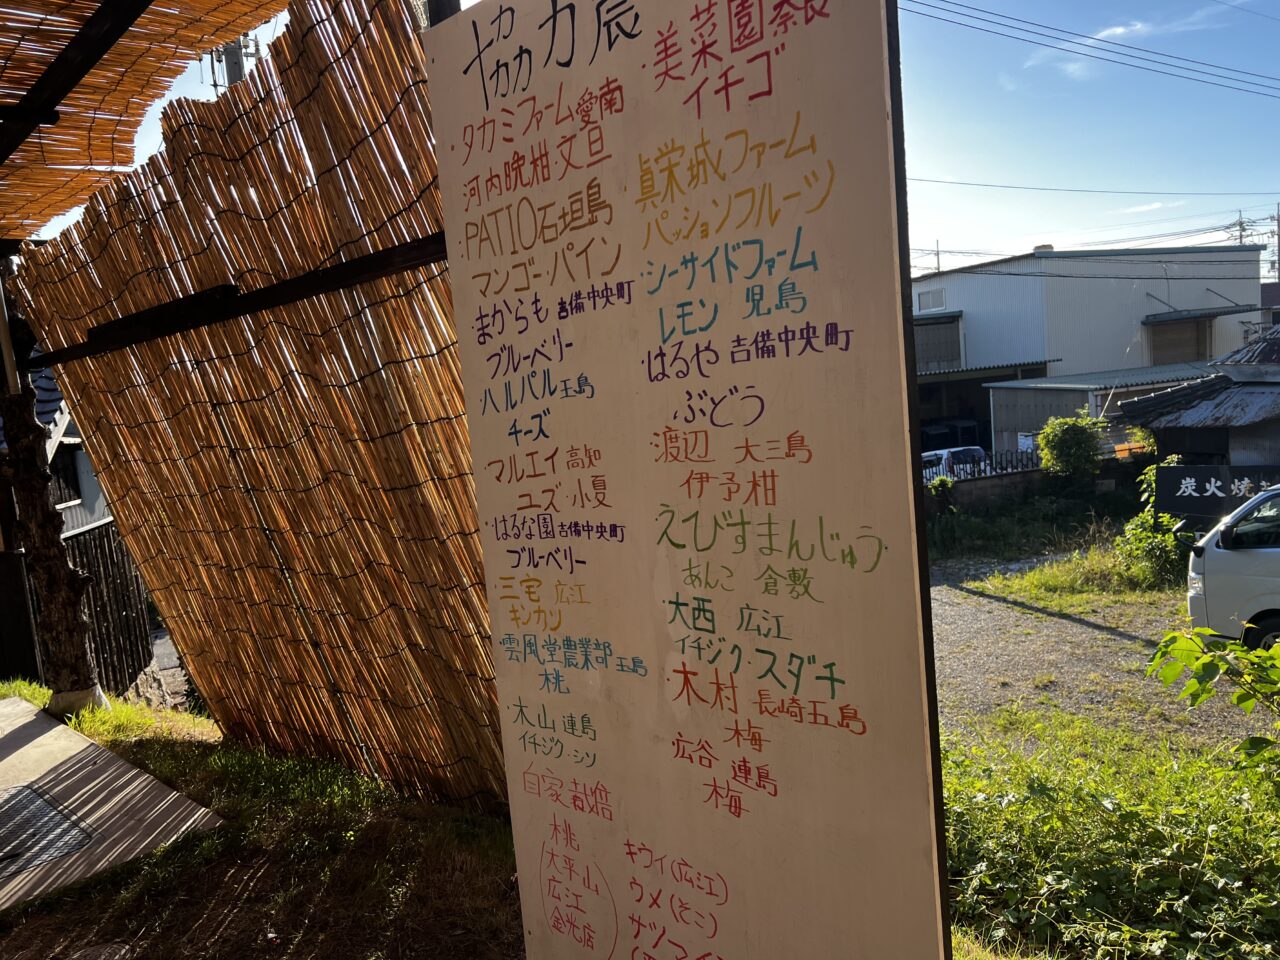 協力農
・タカミファーム愛南
河内晩柑・文旦
・PATIO石垣島
マンゴー・パイン
・まからも 吉備中央町
ブルーベリー
・ハルパル 玉島
チーズ
・マルエイ 高知
ユズ・小夏
・はるな園 吉備中央町
ブルーベリー
・三宅 広江
キンカン
・雲風堂農業部 玉島
桃
・木山 連島
イチジク・シソ
自家栽培
桃
大平山
広江
金光店
・美菜園 奈良
イチゴ
・眞栄城ファーム
パッションフルーツ
・シーサイドファーム
レモン 児島
・はるや 吉備中央町
ぶどう
・渡辺 大三島
伊予柑
・えびすまんじゅう
あんこ 倉敷
・大西 広江
イチジク・スダチ
・木村 長崎五島
梅
・広谷 連島
梅
キウイ(広江)
ウメ(そこ)
炭火焼